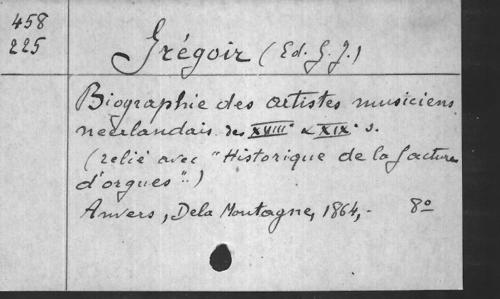 458
225
Grégoir (Ed. G. J.)
Biographie des artistes musiciens
néerlandais des XVIIIe & XIXe s.
(relié avec "Historique de la facture
d'orgues".)
Anvers, Dela Montagne, 1864,- 8o